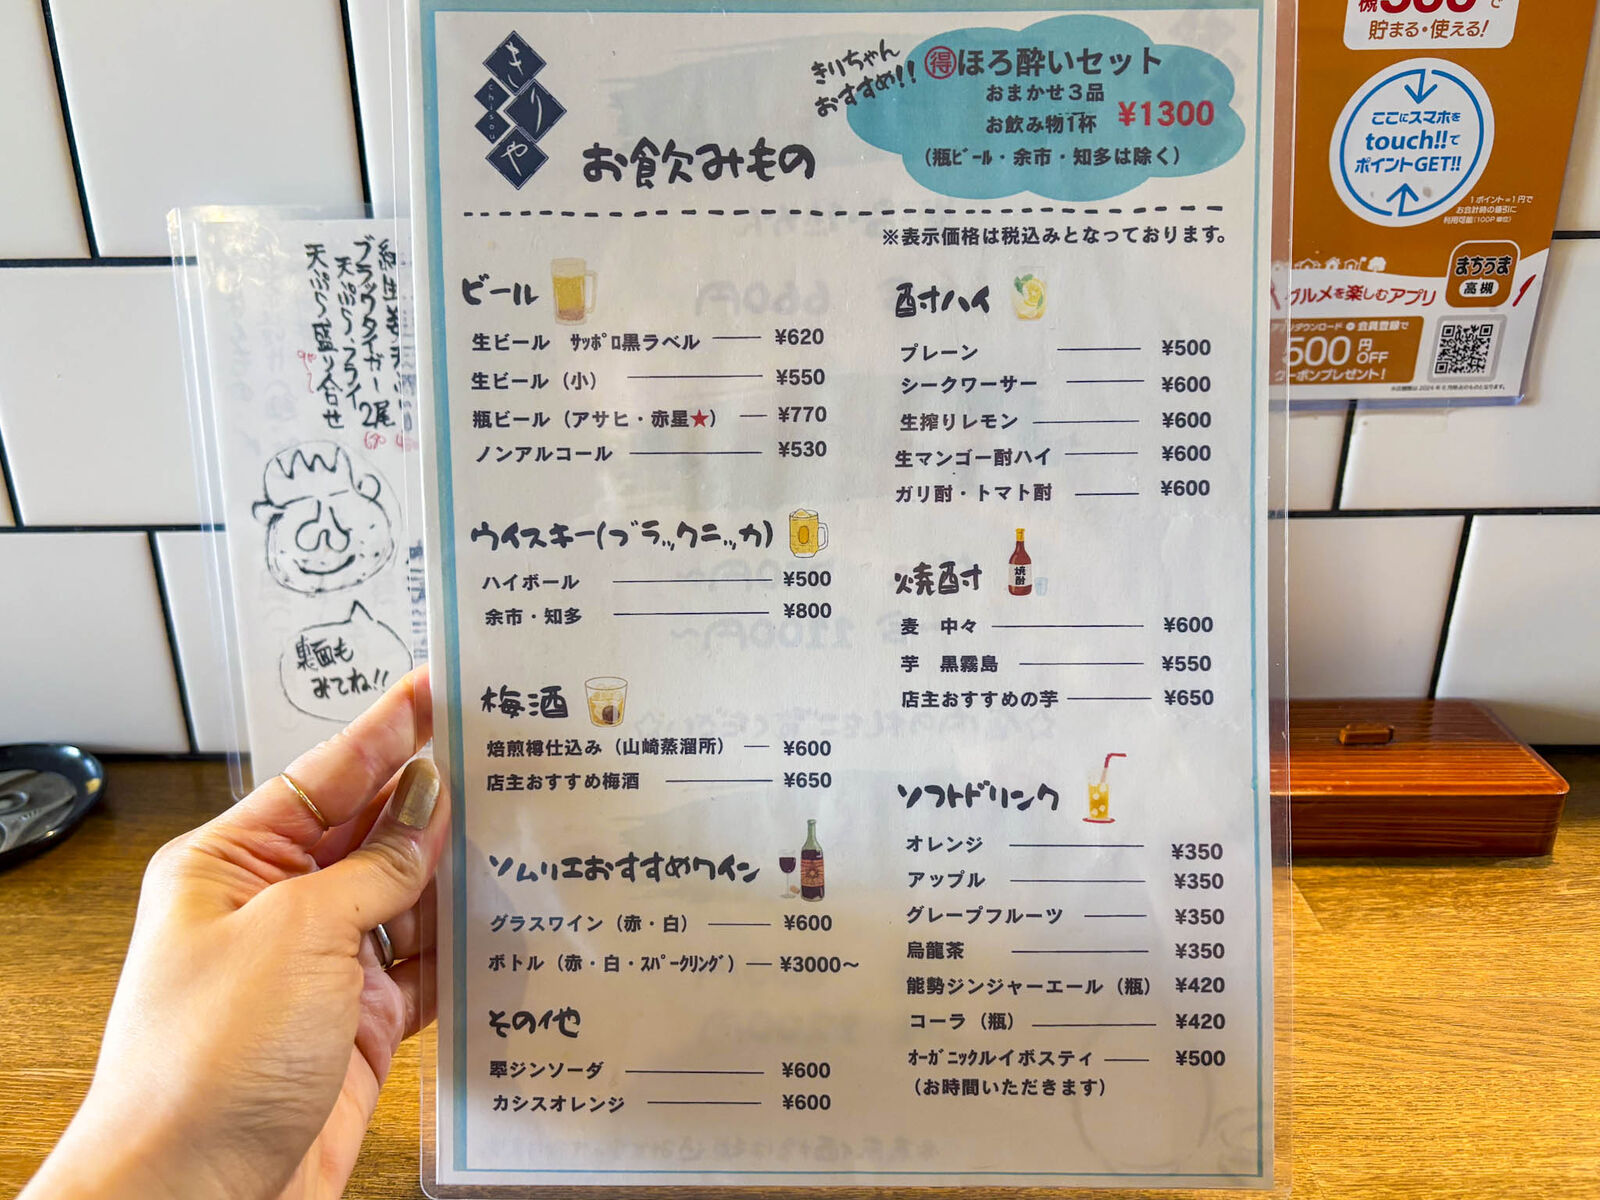 きりや
chisou
お飲みもの
きりちゃん
おすすめ!!
得ほろ酔いセット
おまかせ3品
お飲み物1杯
¥1300
(瓶ビール・余市・知多は除く)
※表示価格は税込みとなっております。
ビール
生ビール サッポロ黒ラベル ¥620
生ビール(小) ¥550
瓶ビール(アサヒ・赤星★) ¥770
ノンアルコール ¥530
ウイスキー(ブラックニッカ)
ハイボール ¥500
余市・知多 ¥800
梅酒
焙煎樽仕込み(山崎蒸溜所) ¥600
店主おすすめ梅酒 ¥650
ソムリエおすすめワイン
グラスワイン(赤・白) ¥600
ボトル(赤・白・スパークリング) ¥3000〜
その他
翠ジンソーダ ¥600
カシスオレンジ ¥600
酎ハイ
プレーン ¥500
シークワーサー ¥600
生搾りレモン ¥600
生マンゴー酎ハイ ¥600
ガリ酎・トマト酎 ¥600
焼酎
焼酎
麦 中々 ¥600
芋 黒霧島 ¥550
店主おすすめの芋 ¥650
ソフトドリンク
オレンジ ¥350
アップル ¥350
グレープフルーツ ¥350
烏龍茶 ¥350
能勢ジンジャーエール(瓶) ¥420
コーラ(瓶) ¥420
オーガニックルイボスティ ¥500
(お時間いただきます)
ブラックタイガー2尾
天ぷら、フライ
天ぷら盛り合せ
裏面も
みてね!!
貯まる・使える!
ここにスマホを
touch!!て
ポイントGET!!
1ポイント=1円で
お会計時の値引に
利用可能(100P単位)
まちうま
高槻
グルメを楽しむアプリ
500円OFF
クーポンプレゼント!